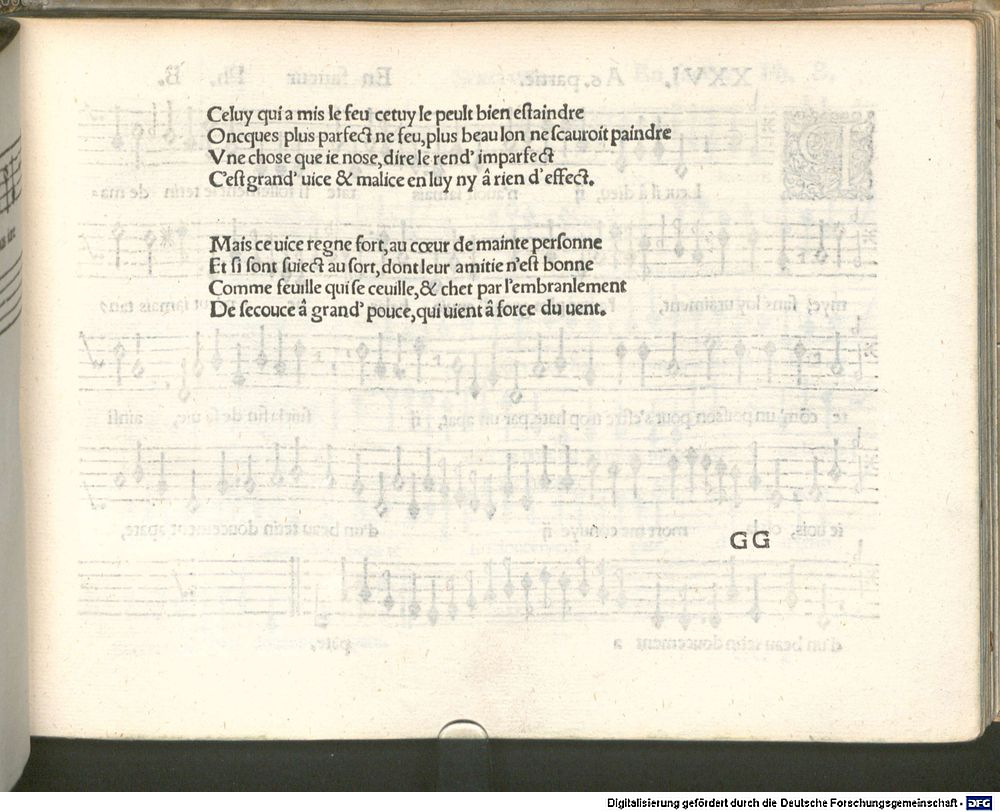 Celuy qui a mis le feu cetuy le peult bien estaindre
Oncques plus parfect ne feu, plus beau lon ne scauroit paindre
Vne chose que ie nose, dire le rend' imparfect
C'est grand' uice & malice en luy ny â rien d'effect.
Mais ce uice regne fort, au cœur de mainte personne
Et si sont suiect au sort, dont leur amitie n'est bonne
Comme feuille qui se ceuille, & chet par l'embranlement
De secouce â grand' pouce, qui uient â force du uent.
GG
Digitalisierung gefördert durch die Deutsche Forschungsgemeinschaft - DFG